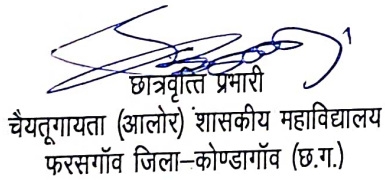 छात्रवृत्ति प्रभारी
चैयतूगायता (आलोर) शासकीय महाविद्यालय
फरसगॉव जिला–कोण्डागॉव (छ.ग.)